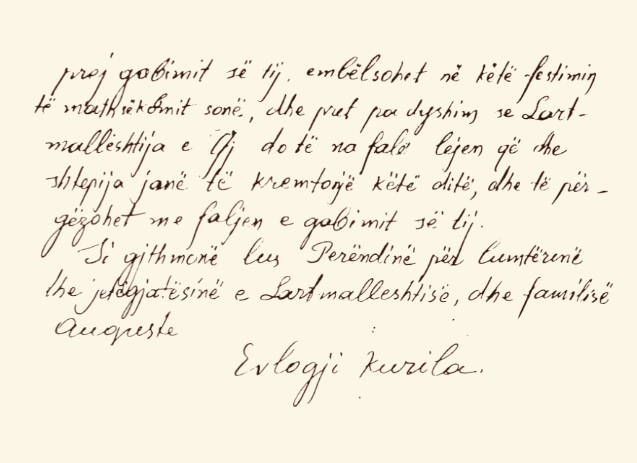 prej gabimit së tij. embëlsohet në këtë festimin
të math sonë, dhe pret pa dyshim se Lart-
mallështija e Tij do të na falë lejen që dhe
shtëpija janë të kremtonjë këtë ditë, dhe të për-
gëzohet me faljen e gabimit së tij.
Si gjithmonë lus Perëndinë për lumtërinë
dhe jetëgjatësinë e Lartmalleshtisë, dhe familisë
Auguste
Evlogji Kurila.